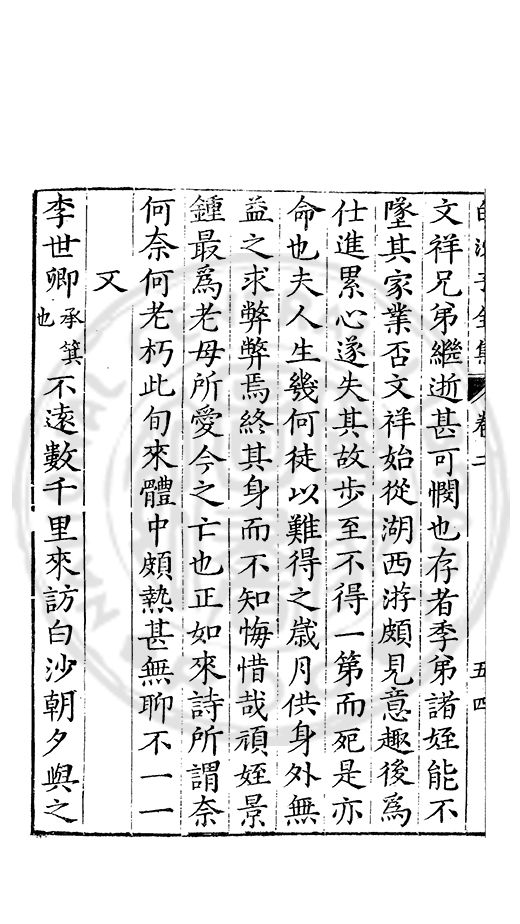 白沙子全集 卷二 五四
文祥兄弟繼逝甚可憫也存者季弟諸姪能不
墜其家業否文祥始從湖西游頗見意趣後爲
仕進累心遂失其故步至不得一第而死是亦
命也夫人生幾何徒以難得之歲月供身外無
益之求弊弊焉終其身而不知悔惜哉頑姪景
鍾最爲老母所愛今之亡也正如來詩所謂奈
何奈何老朽此旬來體中頗熱甚無聊不一一
又
李世卿承箕也不遠數千里來訪白沙朝夕與之